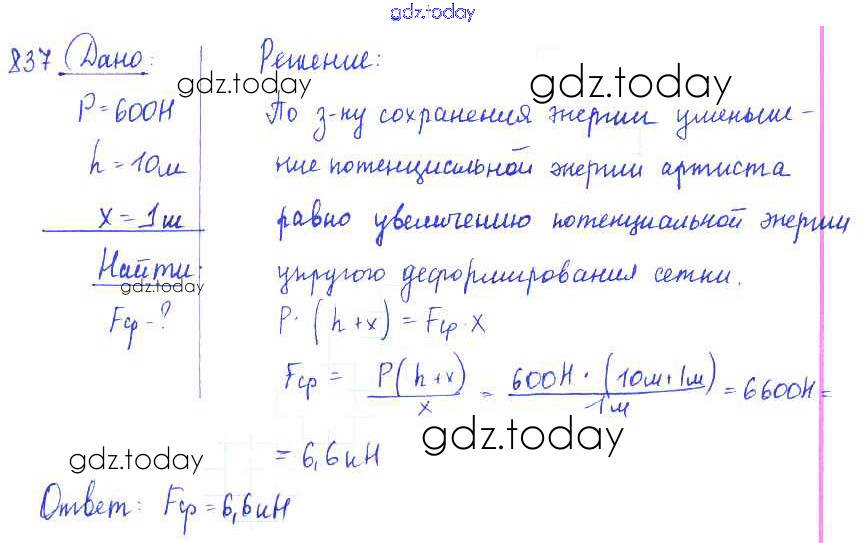 gdz.today
837 Дано:
P = 600Н
h = 10м
x = 1м
Найти:
Fср - ?
gdz.today
gdz.today
gdz.today
Решение:
gdz.today
По з-ну сохранения энергии уменьше-
ние потенциальной энергии артиста
равно увеличению потенциальной энергии
упругого деформирования сетки.
P · (h + x) = Fср · x
Fср = P(h+x) / x = 600Н · (10м + 1м) / 1м = 6600Н =
gdz.today
= 6,6кН
Ответ: Fср = 6,6кН